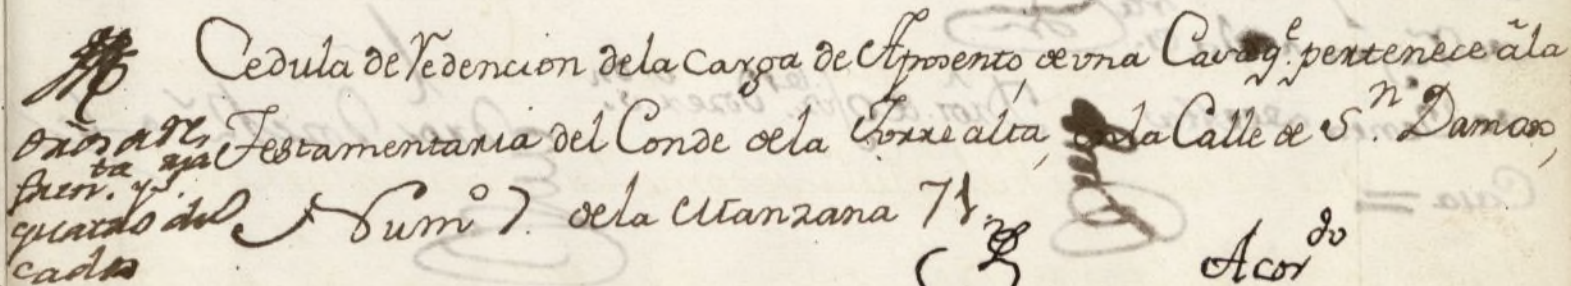 Cedula de redencion dela carga de Aposento, de vna Casa q.e pertenece â la
Testamentaria del Conde dela Torre alta, en la Calle de S.n Damaso,
Num.o 7. dela Manzana 71.
Acor.do
quatro del
cada